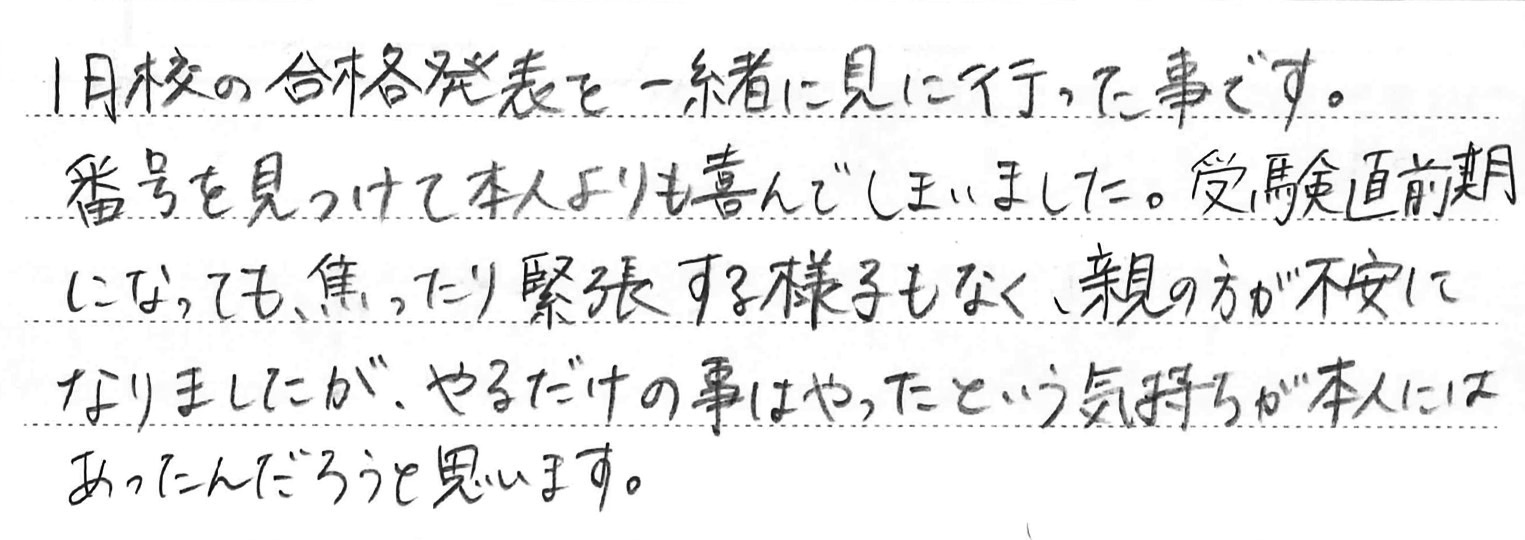 1月校の合格発表を一緒に見に行った事です。
番号を見つけて本人よりも喜んでしまいました。受験直前期
になっても、焦ったり緊張する様子もなく、親の方が不安に
なりましたが、やるだけの事はやったという気持ちが本人には
あったんだろうと思います。